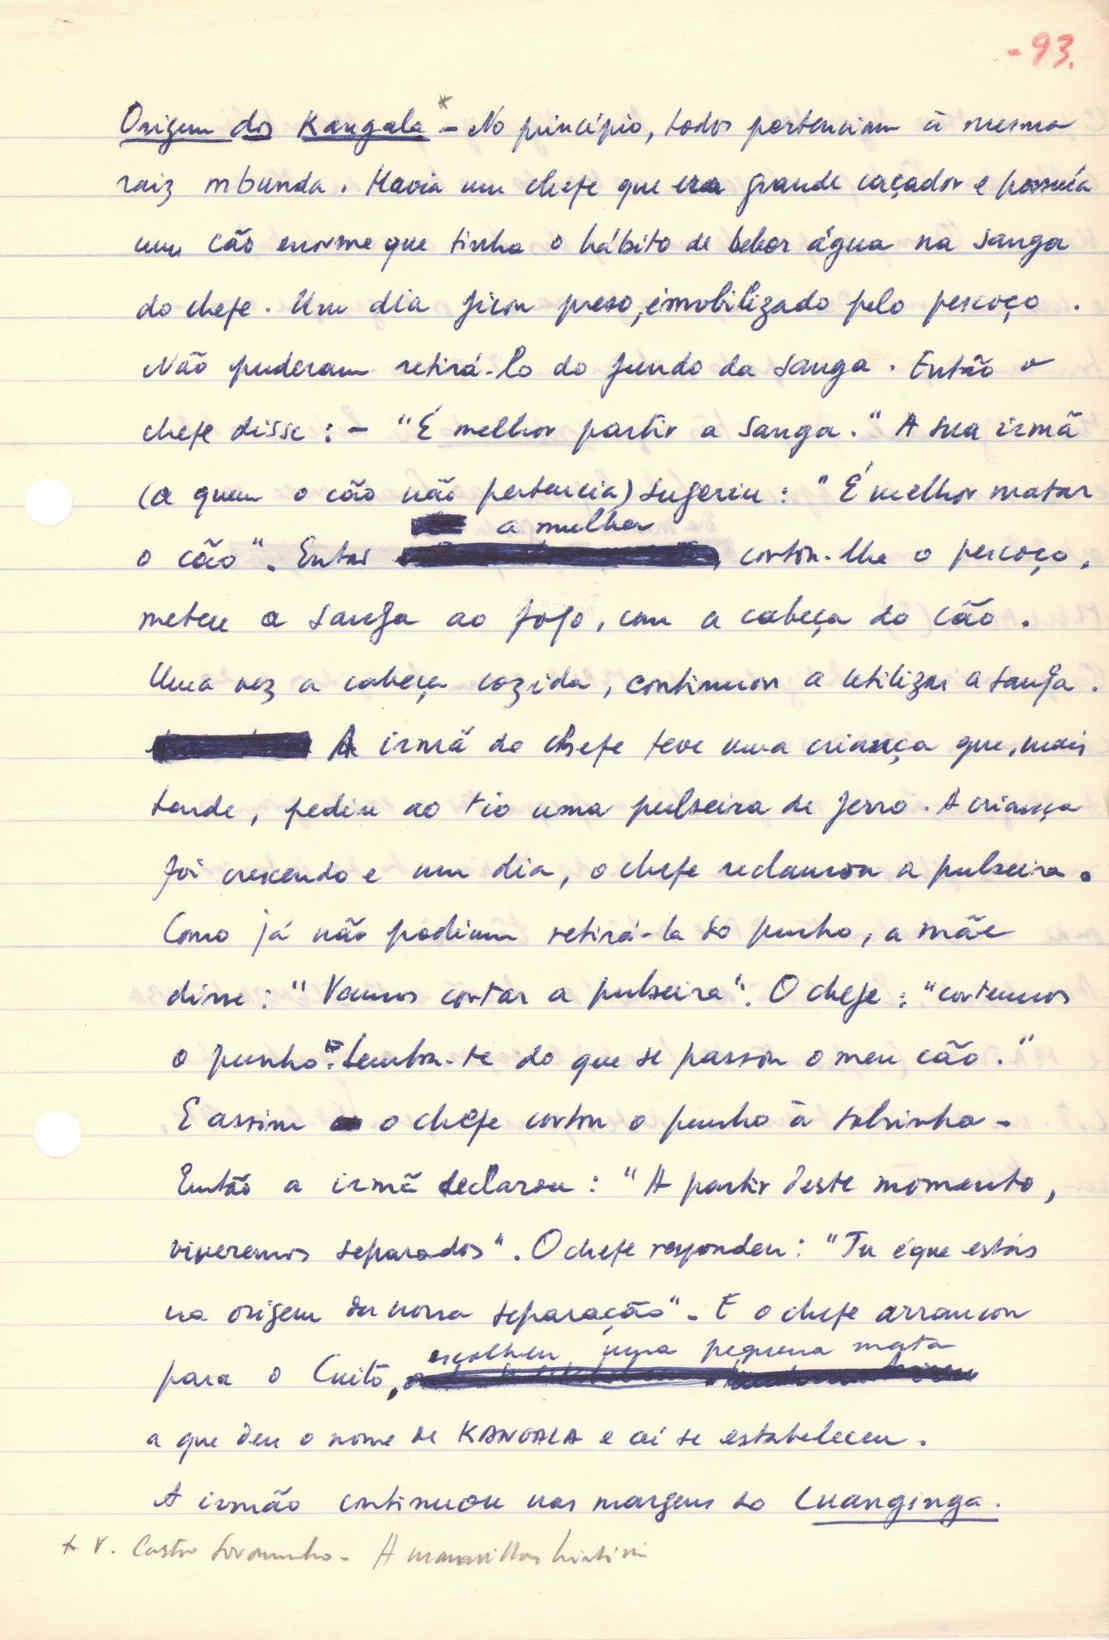 - 93.
Origem dos Kangala * - No princípio, todos pertenciam à mesma
raiz mbunda. Havia um chefe que era grande caçador e possuía
um cão enorme que tinha o hábito de beber água na sanga
do chefe. Um dia ficou preso, imobilizado pelo pescoço.
Não puderam retirá-lo do fundo da sanga. Então o
chefe disse: - "É melhor partir a sanga." A sua irmã
(a quem o cão não pertencia) sugeriu: "É melhor matar
a mulher
o cão". Então cortou-lhe o pescoço,
meteu a sanga ao fogo, com a cabeça do cão.
Uma vez a cabeça cozida, continuou a utilizar a sanga.
A irmã do chefe teve uma criança que, mais
tarde, pediu ao tio uma pulseira de ferro. A criança
foi crescendo e um dia, o chefe reclamou a pulseira.
Como já não podiam retirá-la do punho, a mãe
disse: "Vamos cortar a pulseira". O chefe: "cortemos
o punho". Lembra-te do que se passou o meu cão."
E assim o chefe cortou o punho à sobrinha -
Então a irmã declarou: "A partir deste momento,
viveremos separados". O chefe respondeu: "Tu é que estás
na origem da nossa separação" - E o chefe arrancou
escolheu uma pequena mata
para o Cuito,
a que deu o nome de KANGALA e aí se estabeleceu.
A irmão continuou nas margens do Luanginga.
* V. Castro Soromenho - A maravilhosa